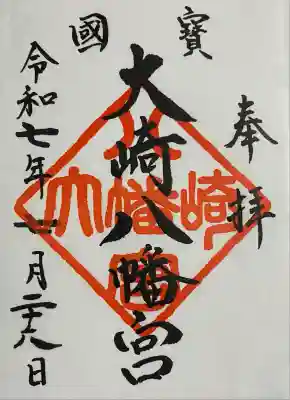 奉拝
國寳
大崎八幡宮
大崎八幡宮
令和七年 月二十八日